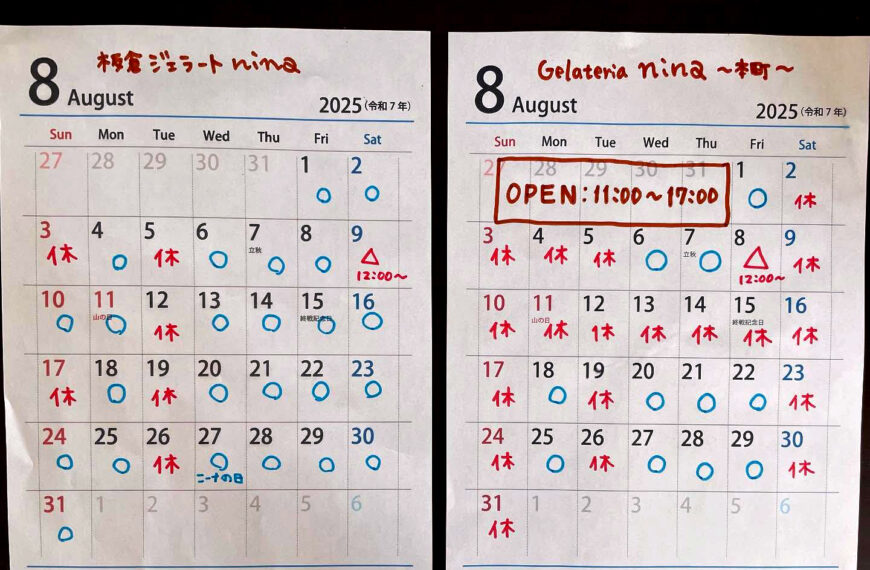 板倉ジェラート nina
8 August 2025(令和7年)
Sun Mon Tue Wed Thu Fri Sat
27 28 29 30 31 1 2
○ ○
3 4 5 6 7 8 9
立秋
休 ○ 休 ○ ○ ○ △
12:00～
10 11 12 13 14 15 16
山の日 終戦記念日
○ ○ 休 ○ ○ ○ ○
17 18 19 20 21 22 23
休 ○ 休 ○ ○ ○ ○
24 25 26 27 28 29 30
○ ○ 休 ○ ○ ○ ○
ニーナの日
31 1 2 3 4 5 6
○
Gelateria nina ～本町～
8 August 2025(令和7年)
Sun Mon Tue Wed Thu Fri Sat
27 28 29 30 31 1 2
OPEN:11:00～17:00 ○ 休
3 4 5 6 7 8 9
立秋
休 休 休 ○ ○ △ 休
12:00～
10 11 12 13 14 15 16
山の日 終戦記念日
休 休 休 休 休 休 休
17 18 19 20 21 22 23
休 ○ 休 ○ ○ ○ 休
24 25 26 27 28 29 30
休 ○ 休 ○ ○ ○ 休
31 1 2 3 4 5 6
休